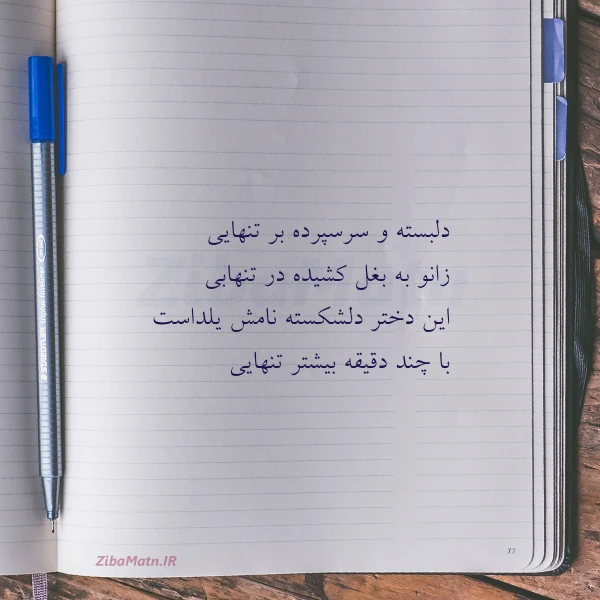 دلبسته و سرسپرده بر تنهایی
زانو به بغل کشیده در تنهایی
این دختر دلشکسته نامش یلداست
با چند دقیقه بیشتر تنهایی
ZibaMatn.IR
77
STAEDTLER triplus fineliner